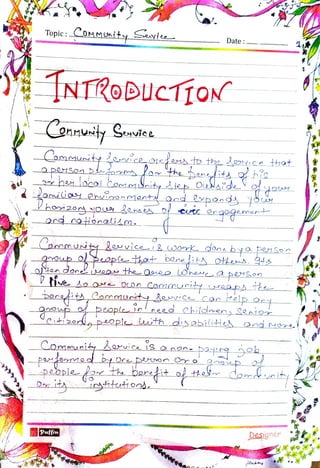 Topic: Community Service
Date:
INTRODUCTION
Community Service
Community Service refers to the service that
a person performs for the benefits of his
or her local community step outside of your
familiar environments and expands your
horizons your senses of civic engagement
and nationalism.
Community Service is work done by a person
group of people that benefits others. It's
often done near the area where a person
live so are own community reaps the
benefits Community service can help any
group of people in need children, senior
citizens, people with disabilities and more
Community Service is a non-paying job
performed by one person or a group of
people for the benefit of their community
or its institutions.
Ruffin
Designer